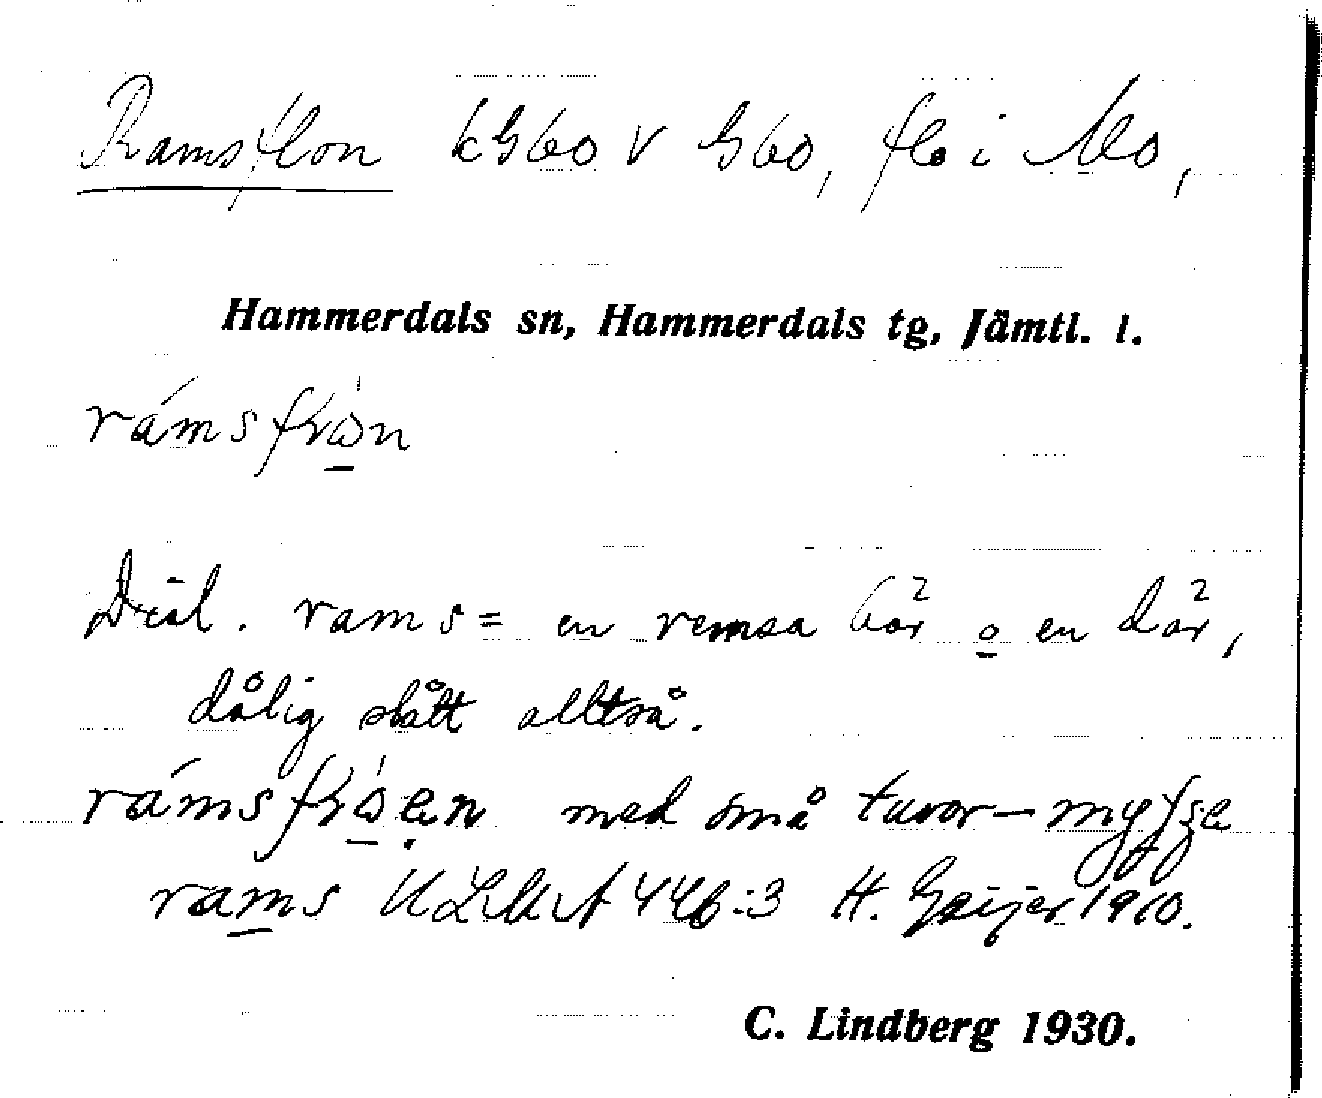 Ramsflon kG60 V G60, flo i Mo,
Hammerdals sn, Hammerdals tg, Jämtl. l.
Dial. rams = en remsa här o en där,
dålig slått alltså.
med små tuvor
rams ULMA 446:3 H. Geijer 1910.
C. Lindberg 1930.